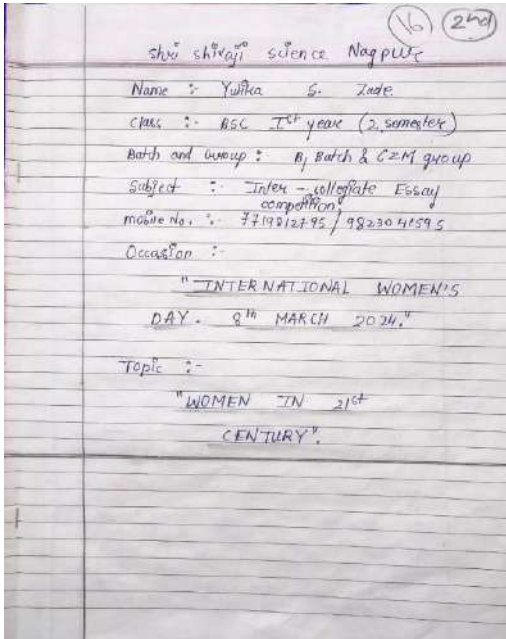 16 2nd
shri shivaji science Nagpur
Name :- Yutika S. Zade.
class :- BSC Ist year (2, semester)
Batch and Group :- B1 Batch & CZM group
Subject :- Inter - collegiate Essay
competition
mobile No. :- 7719812795 / 9823041595
Occasion :-
"INTERNATIONAL WOMEN'S
DAY. 8th MARCH 2024."
Topic :-
"WOMEN IN 21st
CENTURY".